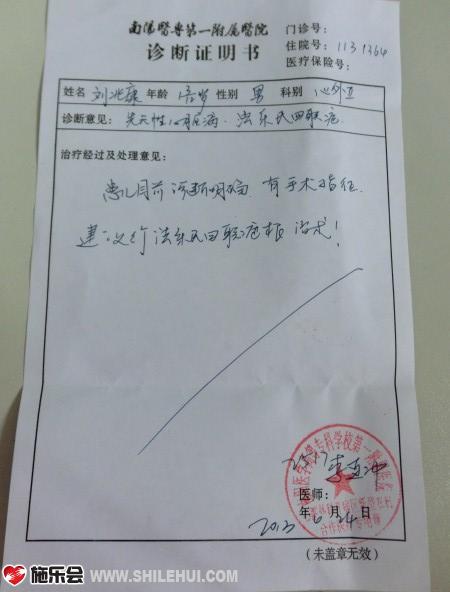 南阳医专第一附属医院
诊断证明书
门诊号:
住院号: 1131364
医疗保险号:
姓名 刘兆康 年龄 1岁 性别 男 科别 心外
诊断意见: 先天性心脏病、法乐氏四联症
治疗经过及处理意见:
患儿目前诊断明确 有手术指征
建议行法乐氏四联症根治术!
专科学校第一附属医院
医师: 李
2013年6月24日
(未盖章无效)
施乐会 WWW.SHILEHUI.COM